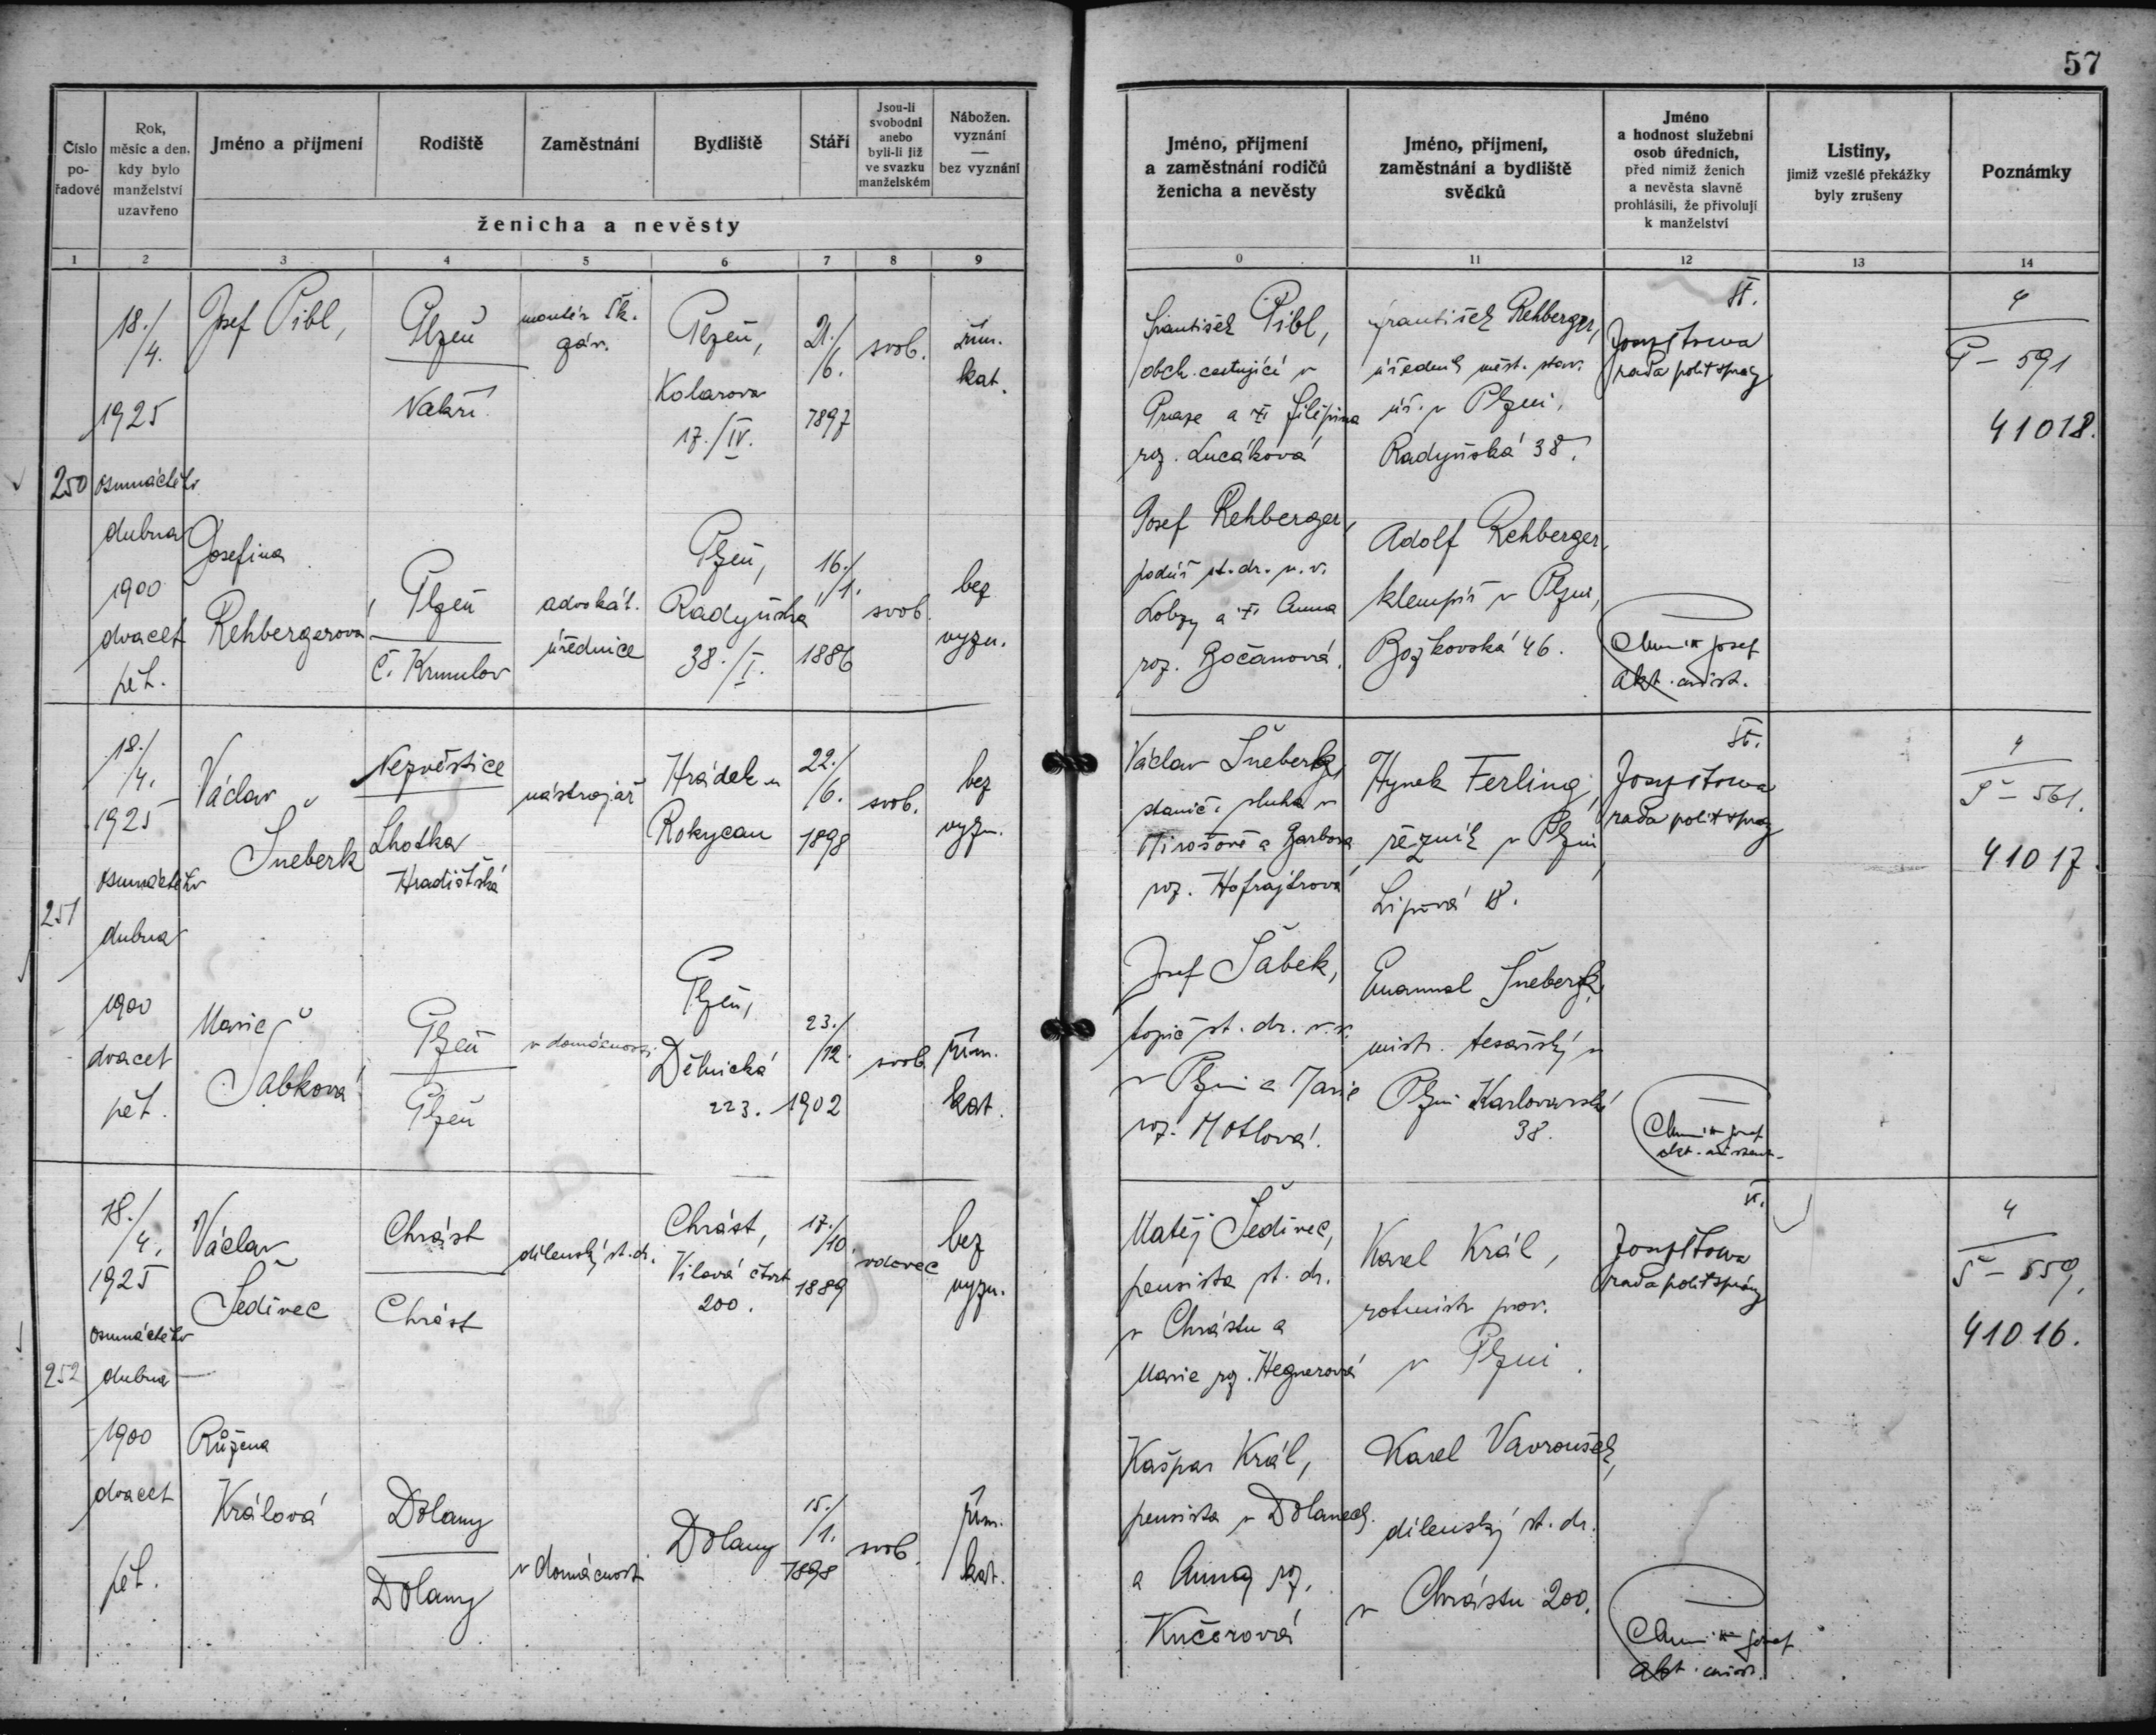 57
Číslo po-řadové
Rok, měsíc a den, kdy bylo manželství uzavřeno
Jméno a příjmení
Rodiště
Zaměstnání
Bydliště
Stáří
Jsou-li svobodni anebo byli-li již ve svazku manželském
Nábožen. vyznání — bez vyznání
ženicha a nevěsty
Jméno, příjmení a zaměstnání rodičů ženicha a nevěsty
Jméno, příjmení, zaměstnání a bydliště svědků
Jméno a hodnost služební osob úředních, před nimiž ženich a nevěsta slavně prohlásili, že přivolují k manželství
Listiny, jimiž vzešlé překážky byly zrušeny
Poznámky
1 2 3 4 5 6 7 8 9 0 11 12 13 14
250
18./4.
1925
osmnáctého
dubna
1900
dvacet
pět.
Josef Pibl,
Plzeň
Nákří
montér Šk.
záv.
Plzeň,
Kolarova
17./IV.
21./6.
1897
svob.
řím.
kat.
František Pibl,
obch. cestující v
Praze a Filipina
roz. Lucáková
František Rehberger,
úředník měst. stav.
úř. v Plzni,
Radyňská 38.
rada polit správy
4
P - 591
41018.
Josefina
Rehbergerová
Plzeň
Č. Krumlov
advokát.
úřednice
Plzeň,
Radyňská
38./I.
16./1.
1886
svob.
bez
vyzn.
Josef Rehberger,
podúř. st. dr. v. v.
Lobzy a Anna
roz. Bočanová.
Adolf Rehberger,
klempíř v Plzni,
Božkovská 46.
Josef
251
18./4.
1925
osmnáctého
dubna
1900
dvacet
pět.
Václav
Šneberk
Nezvěstice
Lhotka
Hradišťská
nástrojář
Hrádek u
Rokycan
22./6.
1898
svob.
bez
vyzn.
Václav Šneberk,
stanič. sluha v
Mirošově a Barbora
roz. Hofrajtrová
Hynek Ferling,
řezník v Plzni,
Lipová 18.
rada polit správy
4
Š - 561.
41017.
Marie
Šabková
Plzeň
Plzeň
v domácnosti
Plzeň,
Dělnická
223.
23./12.
1902
svob.
řím.
kat.
Josef Šabek,
topič st. dr. v. v.
v Plzni a Marie
roz. Motlová.
Emanuel Šneberk,
mistr. tesařský v
Plzni Karlovarská
38.
Josef
252
18./4.
1925
osmnáctého
dubna
1900
dvacet
pět.
Václav
Šedivec
Chrást
Chrást
dílenský st. dr.
Chrást,
Vilová čtvrt
200.
17./10.
1889
vdovec
bez
vyzn.
Matěj Šedivec,
pensista st. dr.
v Chrástu a
Marie roz. Hegnerová
Karel Král,
rotmistr
v Plzni.
rada polit správy
4
Š - 559,
41016.
Růžena
Králová
Dolany
Dolany
v domácnosti
Dolany
15./1.
1898
svob.
řím.
kat.
Kašpar Král,
pensista v Dolanech
a Anna roz.
Kučerová
Karel Vavroušek,
dílenský st. dr.
v Chrástu 200.
Josef